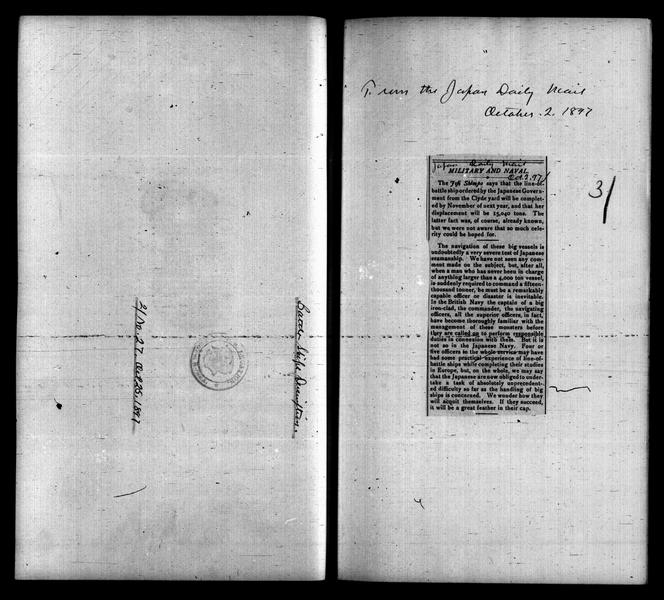 2/No. 27. Oct 25. 1897
From the Japan Daily Mail
October. 2. 1897
3/
Japan Daily Mail
MILITARY AND NAVAL.
Oct. 2. 97/
The Jiji Shimpo says that the line-of-
battle ship ordered by the Japanese Govern-
ment from the Clyde yard will be complet-
ed by November of next year, and that her
displacement will be 15,040 tons. The
latter fact was, of course, already known,
but we were not aware that so much cele-
rity could be hoped for.
The navigation of these big vessels is
undoubtedly a very severe test of Japanese
seamanship. We have not seen any com-
ment made on the subject, but, after all,
when a man who has never been in charge
of anything larger than a 4,000 ton vessel,
is suddenly required to command a fifteen-
thousand tonner, he must be a remarkably
capable officer or disaster is inevitable.
In the British Navy the captain of a big
iron-clad, the commander, the navigating
officers, all the superior officers, in fact,
have become thoroughly familiar with the
management of these monsters before
they are called on to perform responsible
duties in connexion with them. But it is
not so in the Japanese Navy. Four or
five officers in the whole service may have
had some practical experience of line-of-
battle ships while completing their studies
in Europe, but, on the whole, we may say
that the Japanese are now obliged to under-
take a task of absolutely unprecedent-
ed difficulty so far as the handling of big
ships is concerned. We wonder how they
will acquit themselves. If they succeed,
it will be a great feather in their cap.